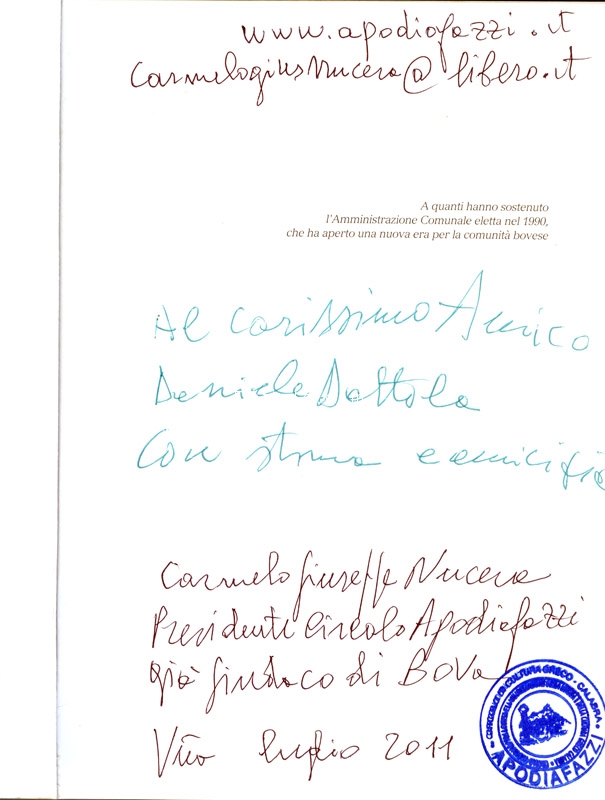 www.apodiafazzi.it
Carmelogiusnucera@libero.it
A quanti hanno sostenuto
l'Amministrazione Comunale eletta nel 1990,
che ha aperto una nuova era per la comunità bovese
Al carissimo Amico
Daniele Dattola
Con stima e amicizia
Carmelo Giuseppe Nucera
Presidente Circolo Apodiafazzi
già Sindaco di Bova
luglio 2011
CULTURA GRECO - CALABRA
APODIAFAZZI